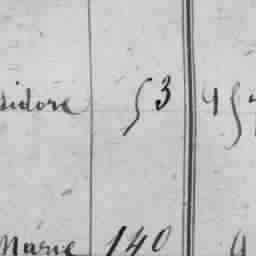 sidore 53 45
Marie 140